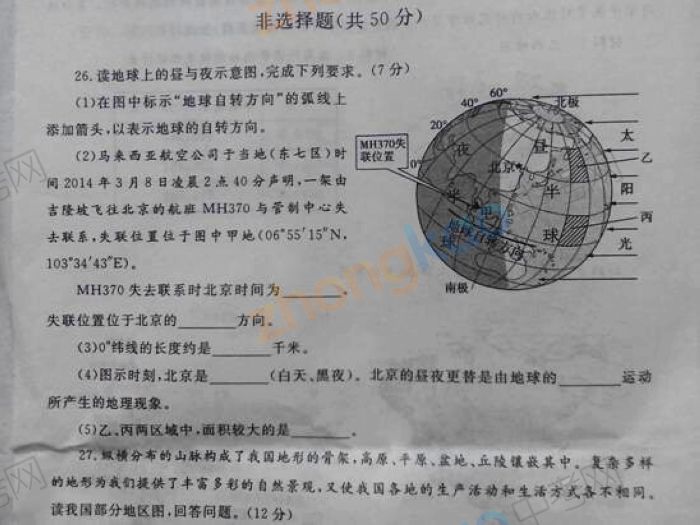 非选择题(共50分)
26.读地球上的昼与夜示意图,完成下列要求。(7分)
(1)在图中标示“地球自转方向”的弧线上
添加箭头,以表示地球的自转方向。
(2)马来西亚航空公司于当地(东七区)时
间2014年3月8日凌晨2点40分声明,一架由
吉隆坡飞往北京的航班MH370与管制中心失
去联系,失联位置位于图中甲地(06°55′15″N,
103°34′43″E)。
MH370失去联系时北京时间为______,
失联位置位于北京的______方向。
(3)0°纬线的长度约是______千米。
(4)图示时刻,北京是______(白天、黑夜)。北京的昼夜更替是由地球的______运动
所产生的地理现象。
(5)乙、丙两区域中,面积较大的是______。
27.纵横分布的山脉构成了我国地形的骨架,高原、平原、盆地、丘陵镶嵌其中。复杂多样
的地形为我们提供了丰富多彩的自然景观,又使我国各地的生产活动和生活方式各不相同。
读我国部分地区图,回答问题。(12分)
60°
40°
20°
0°
北极
MH370失
联位置
夜
半
球
昼
半
球
北京
甲
地球自转方向
南极
太
阳
光
乙
丙
zhongkao
中考网